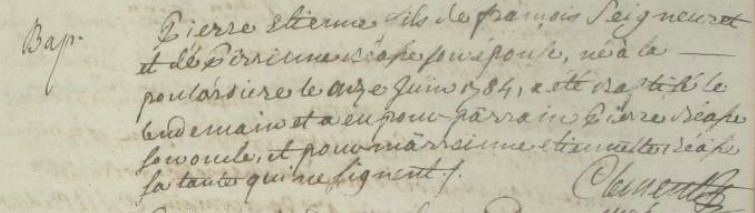 Bap.
Pierre etienne fils de françois Seigneuret
et de Pierrienne réape son épouse, né à la
poulardiere le onze Juin 1784, a eté baptisé le
lendemain et a eu pour parrain Pierre réape
son oncle, et pour marrainne etiennette réape
sa tante qui ne signent /.
Clement